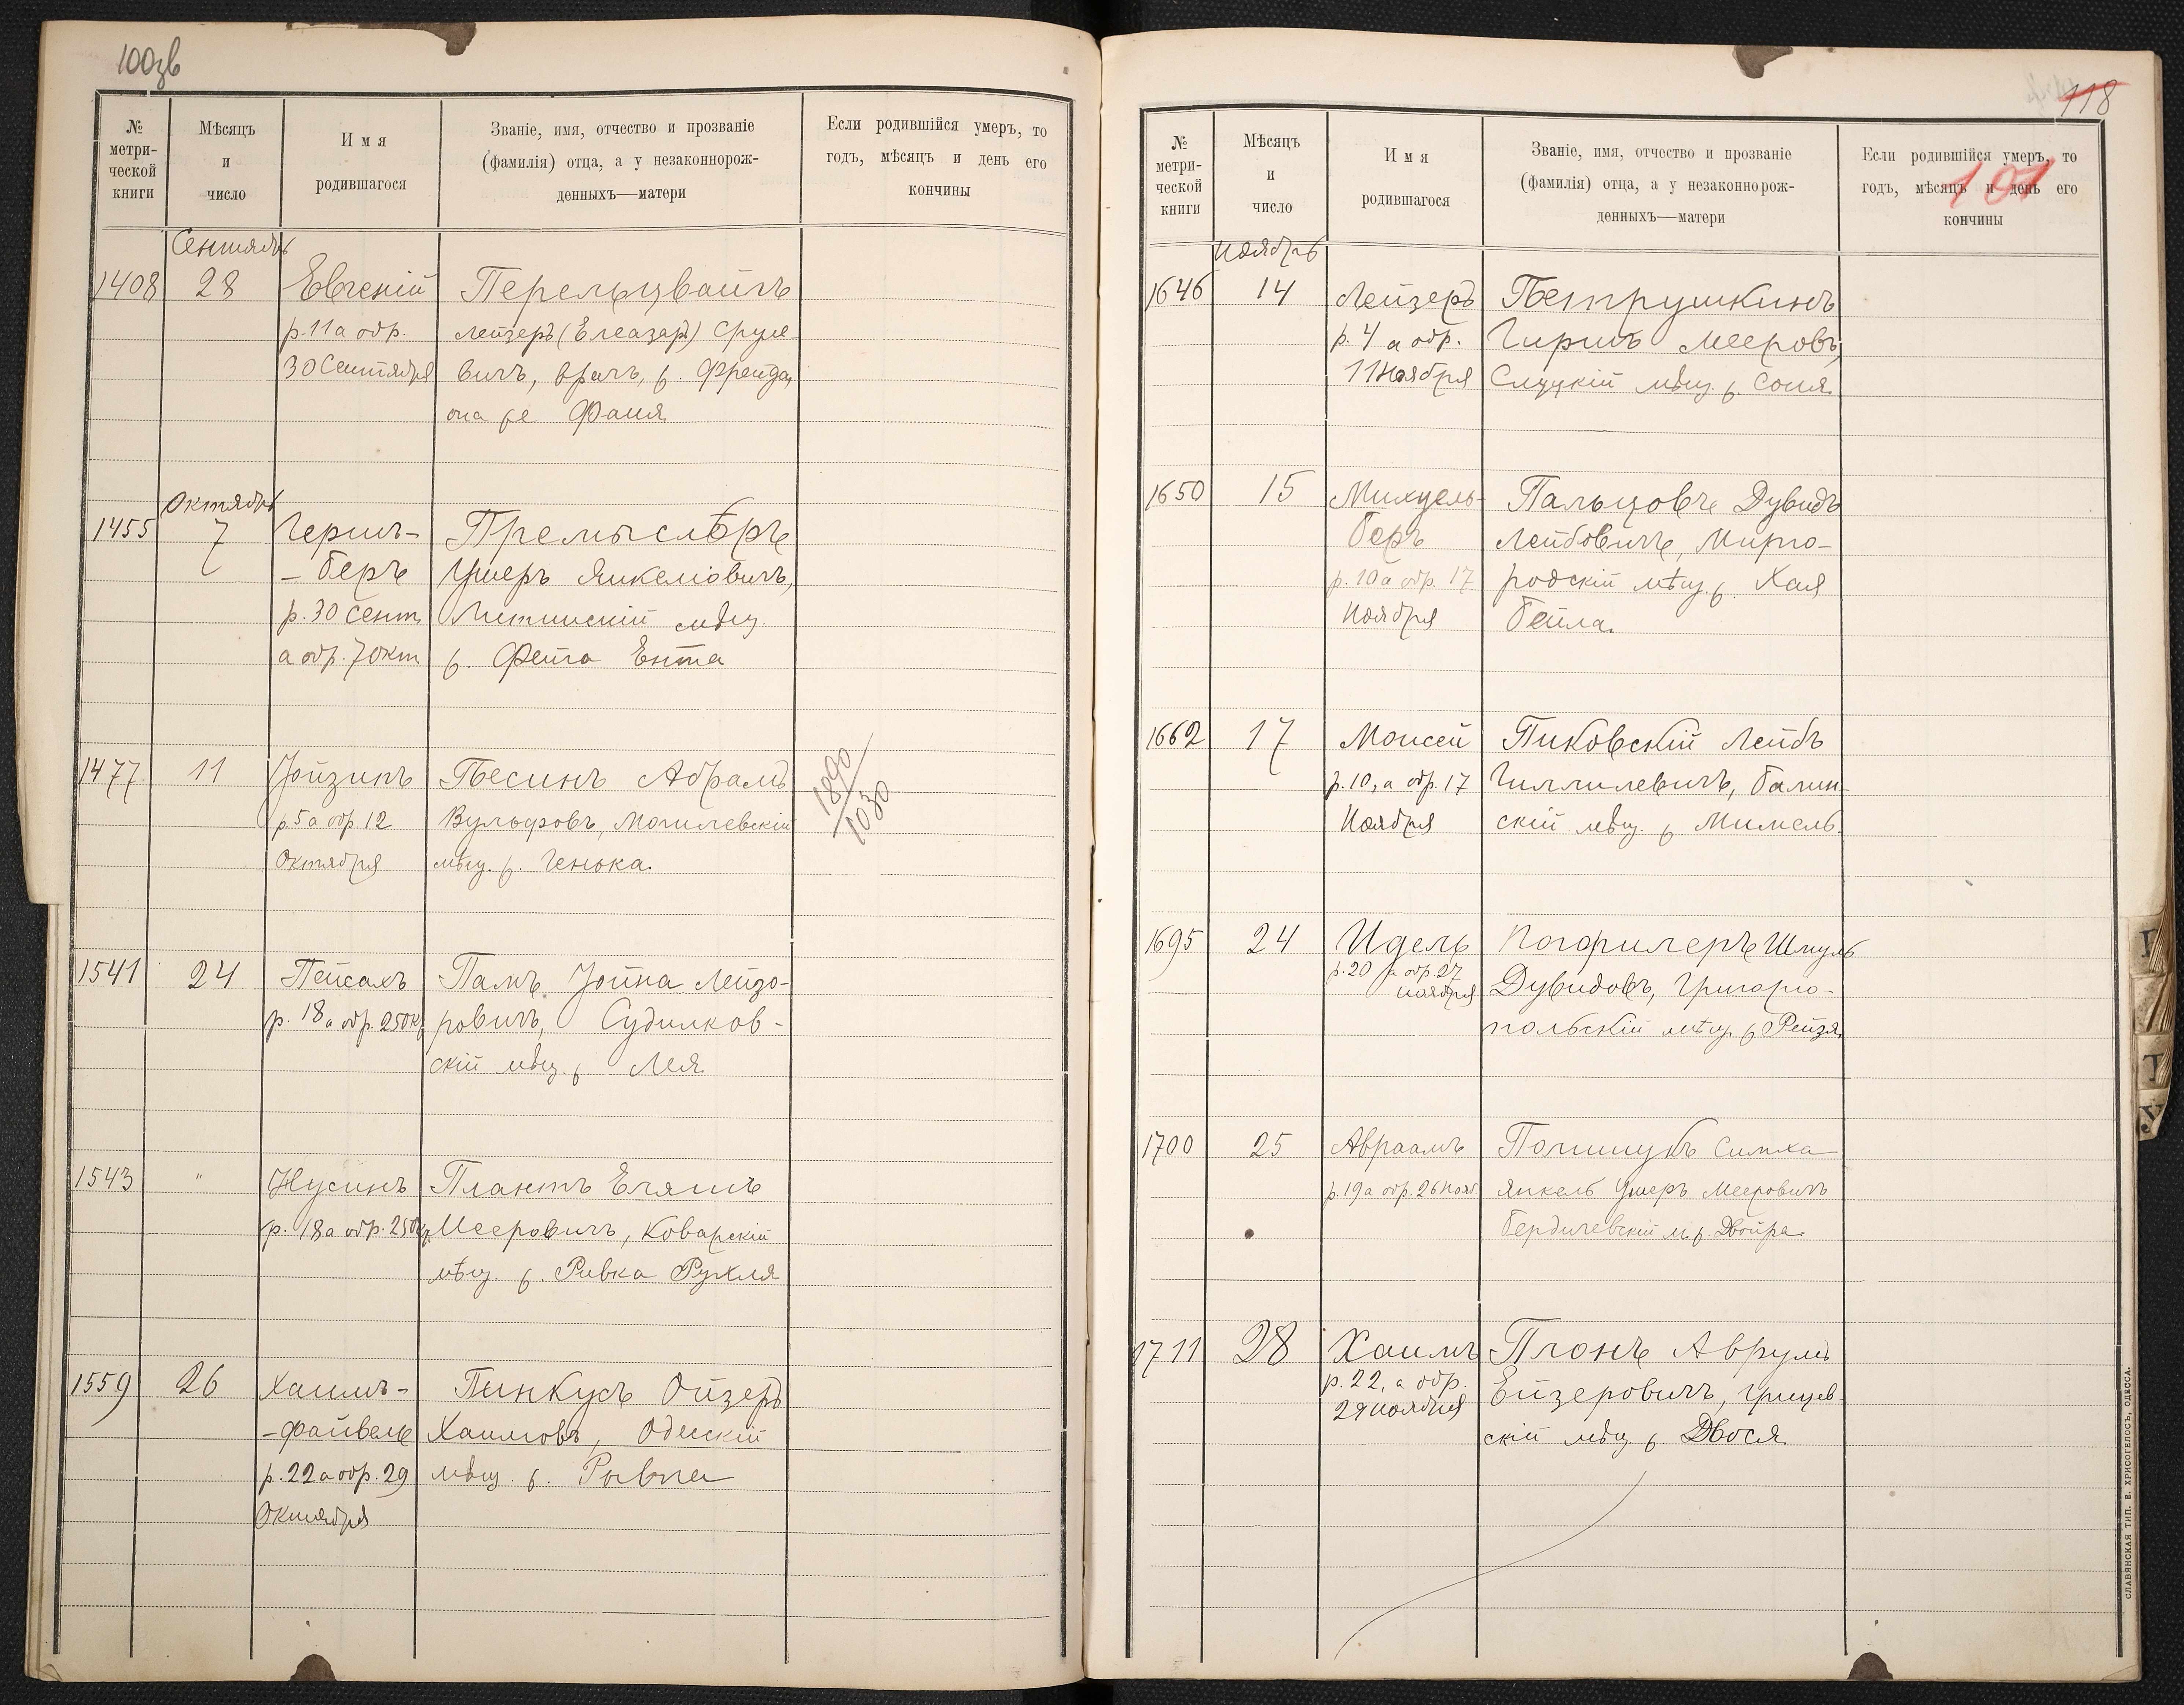 100зв
№ метри-ческой книги
Мѣсяцъ и число
Имя родившагося
Званіе, имя, отчество и прозваніе (фамилія) отца, а у незаконнорож-денныхъ—матери
Если родившійся умеръ, то годъ, мѣсяцъ и день его кончины
Сентябрь
1408 28 Евгеній Перельцвайгъ
р. 11 а обр. Лейзеръ (Елеазаръ) Сруле-
30 Сентября вичъ, врачъ, ж. Фрейда,
она же Фаня
Октябрь
1455 7 Герш- Премыслѣръ
-Беръ Ушеръ Янкеліовичъ,
р. 30 Сент. Литинскій мѣщ.
а обр. 7 Окт. ж. Фейга Ента
1477 11 Іойзипъ Песинъ Абрамъ
р. 5 а обр. 12 Вульфовъ, Могилевскій
Октября мѣщ. ж. Генька.
1890
1030
1541 24 Пейсахъ Памъ Іойна Лейзо-
р. 18 а обр. 25 Ок. ровичъ, Судилков-
скій мѣщ. ж. Лея.
1543 " Нусинъ Плактъ Еляшъ
р. 18 а обр. 25 Ок. Мееровичъ, Коварскій
мѣщ. ж. Ривка Рухля
1559 26 Хаимъ- Пинкусъ Ойзеръ
-Файвель Хаимовъ, Одесскій
р. 22 а обр. 29 мѣщ. ж. Рывка
Октября
118
№ метри-ческой книги
Мѣсяцъ и число
Имя родившагося
Званіе, имя, отчество и прозваніе (фамилія) отца, а у незаконнорож-денныхъ—матери
Если родившійся умеръ, то годъ, мѣсяцъ и день его кончины
101
Ноябрь
1646 14 Лейзеръ Петрушкинъ
р. 4 а обр. Гиршъ Мееровъ,
11 Ноября Слуцкій мѣщ. ж. Соня.
1650 15 Михуель- Пальцовъ Дувидъ
Беръ Лейбовичъ, Мирго-
р. 10 а обр. 17 родскій мѣщ. ж. Хая
Ноября Бейла.
1662 17 Моисей Пиковскій Лейбъ
р. 10, а обр. 17 Гиллилевичъ, Балин-
Ноября скій мѣщ. ж. Мимель.
1695 24 Идель Погорилеръ Шмуль
р. 20 а обр. 27 Дувидовъ, Григоріо-
ноября
польскій мѣщ. ж. Рейзя.
1700 25 Авраамъ Полищукъ Симха
р. 19 а обр. 26 Нояб. Янкель Ушеръ Мееровичъ
Бердичевскій м. ж. Двойра.
1711 28 Хаимъ Плонъ Аврумъ
р. 22, а обр. Ейзеровичъ, Грицев-
29 ноября
скій мѣщ. ж. Двося.
СЛАВЯНСКАЯ ТИП. Е. ХРИСОГЕЛОСЪ, ОДЕССА.
Т
У